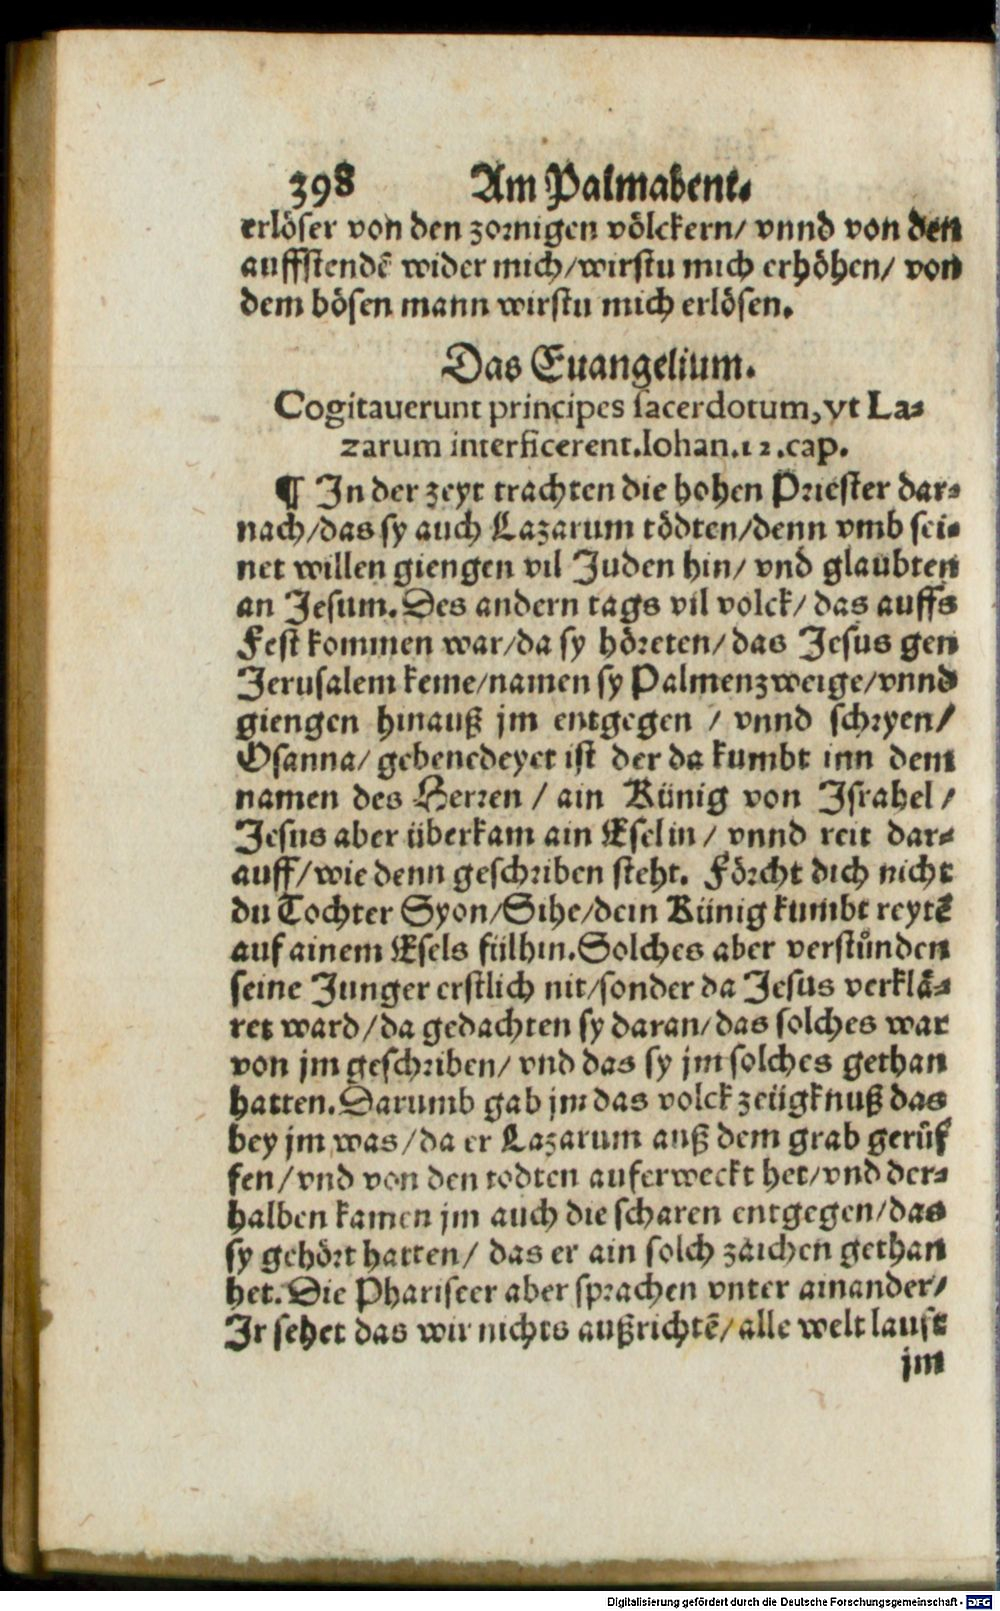 398 Am Palmabent.
erlöser von den zornigen völckern/ vnnd von den
auffstendē wider mich/wirstu mich erhöhen/ von
dem bösen mann wirstu mich erlösen.
Das Euangelium.
Cogitauerunt principes sacerdotum, vt La-
zarum interficerent. Iohan.12.cap.
¶ In der zeyt trachten die hohen Priester dar-
nach/das sy auch Lazarum tödten/denn vmb sei-
net willen giengen vil Juden hin/ vnd glaubten
an Jesum. Des andern tags vil volck/ das auffs
Fest kommen war/da sy höreten/ das Jesus gen
Jerusalem keme/namen sy Palmenzweige/vnnd
giengen hinauß jm entgegen / vnnd schryen/
Osanna/ gebenedeyet ist der da kumbt inn dem
namen des Herren / ain Künig von Israhel/
Jesus aber überkam ain Eselin/ vnnd reit dar-
auff/wie denn geschriben steht. Förcht dich nicht
du Tochter Syon/Sihe/dein Künig kumbt reytē
auf ainem Esels fülhin. Solches aber verstůnden
seine Junger erstlich nit/sonder da Jesus verklä-
ret ward/da gedachten sy daran/das solches war
von jm geschriben/ vnd das sy jm solches gethan
hatten. Darumb gab jm das volck zeügknuß das
bey jm was/da er Lazarum auß dem grab gerůf
fen/vnd von den todten auferweckt het/vnd der-
halben kamen jm auch die scharen entgegen/das
sy gehört hatten/ das er ain solch zaichen gethan
het. Die Phariseer aber sprachen vnter ainander/
Ir sehet das wir nichts außrichtē/alle welt lauft
jm
Digitalisierung gefördert durch die Deutsche Forschungsgemeinschaft - DFG